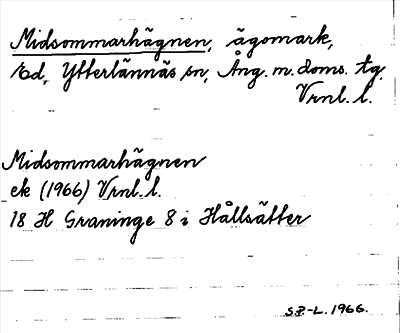 Midsommarhägnen, ägomark,
Ed, Ytterlännäs sn, Ång. m. doms. tg.
Vrnl. l.
Midsommarhägnen
ek (1966) Vrnl. l.
18 H Graninge 8 i Hållsätter
S.P.-L. 1966.